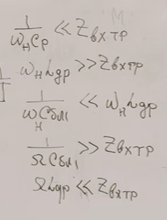 1/(ω_н C_р) ≪ Z_вхтр
ω_н L_др ≫ Z_вхтр
1/(ω_н C_бл1) ≪ ω_н L_др
1/(Ω C_бл1) ≫ Z_вхтр
Ω L_др ≪ Z_вхтр